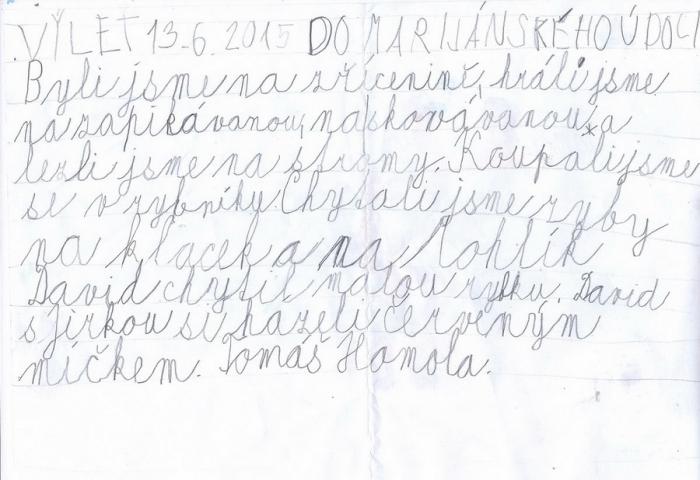 VÝLET 13.6. 2015 DO MARIJÁNSKÉHO ÚDOLÍ
Byli jsme na zřícenině, hráli jsme
na zapikávanou, na skovávanou, a
lezli jsme na stromy. Koupali jsme
se v rybníku. Chytali jsme ryby
na klacek a na Rohlík
David chytil malou rybku. David
s Jirkou si hazeli červeným
míčkem. Tomáš Homola.